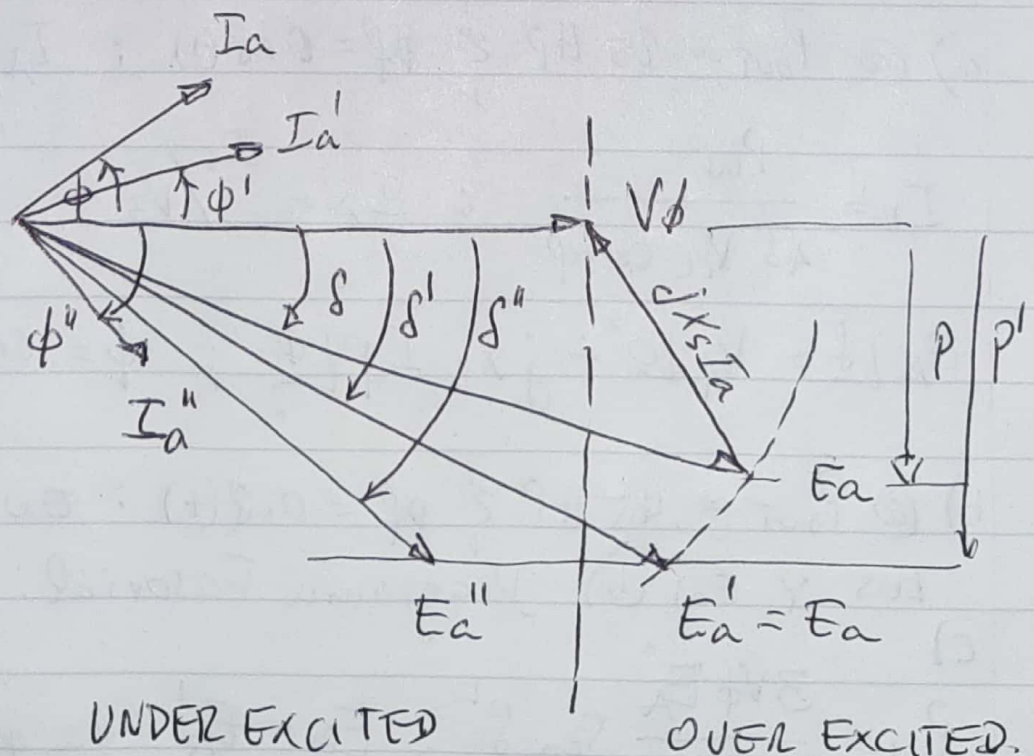 Ia
Ia'
ϕ
ϕ'
Vϕ
ϕ"
δ
δ'
δ"
jXsIa
P
P'
Ia"
Ea
Ea"
Ea' = Ea
UNDER EXCITED
OVER EXCITED.